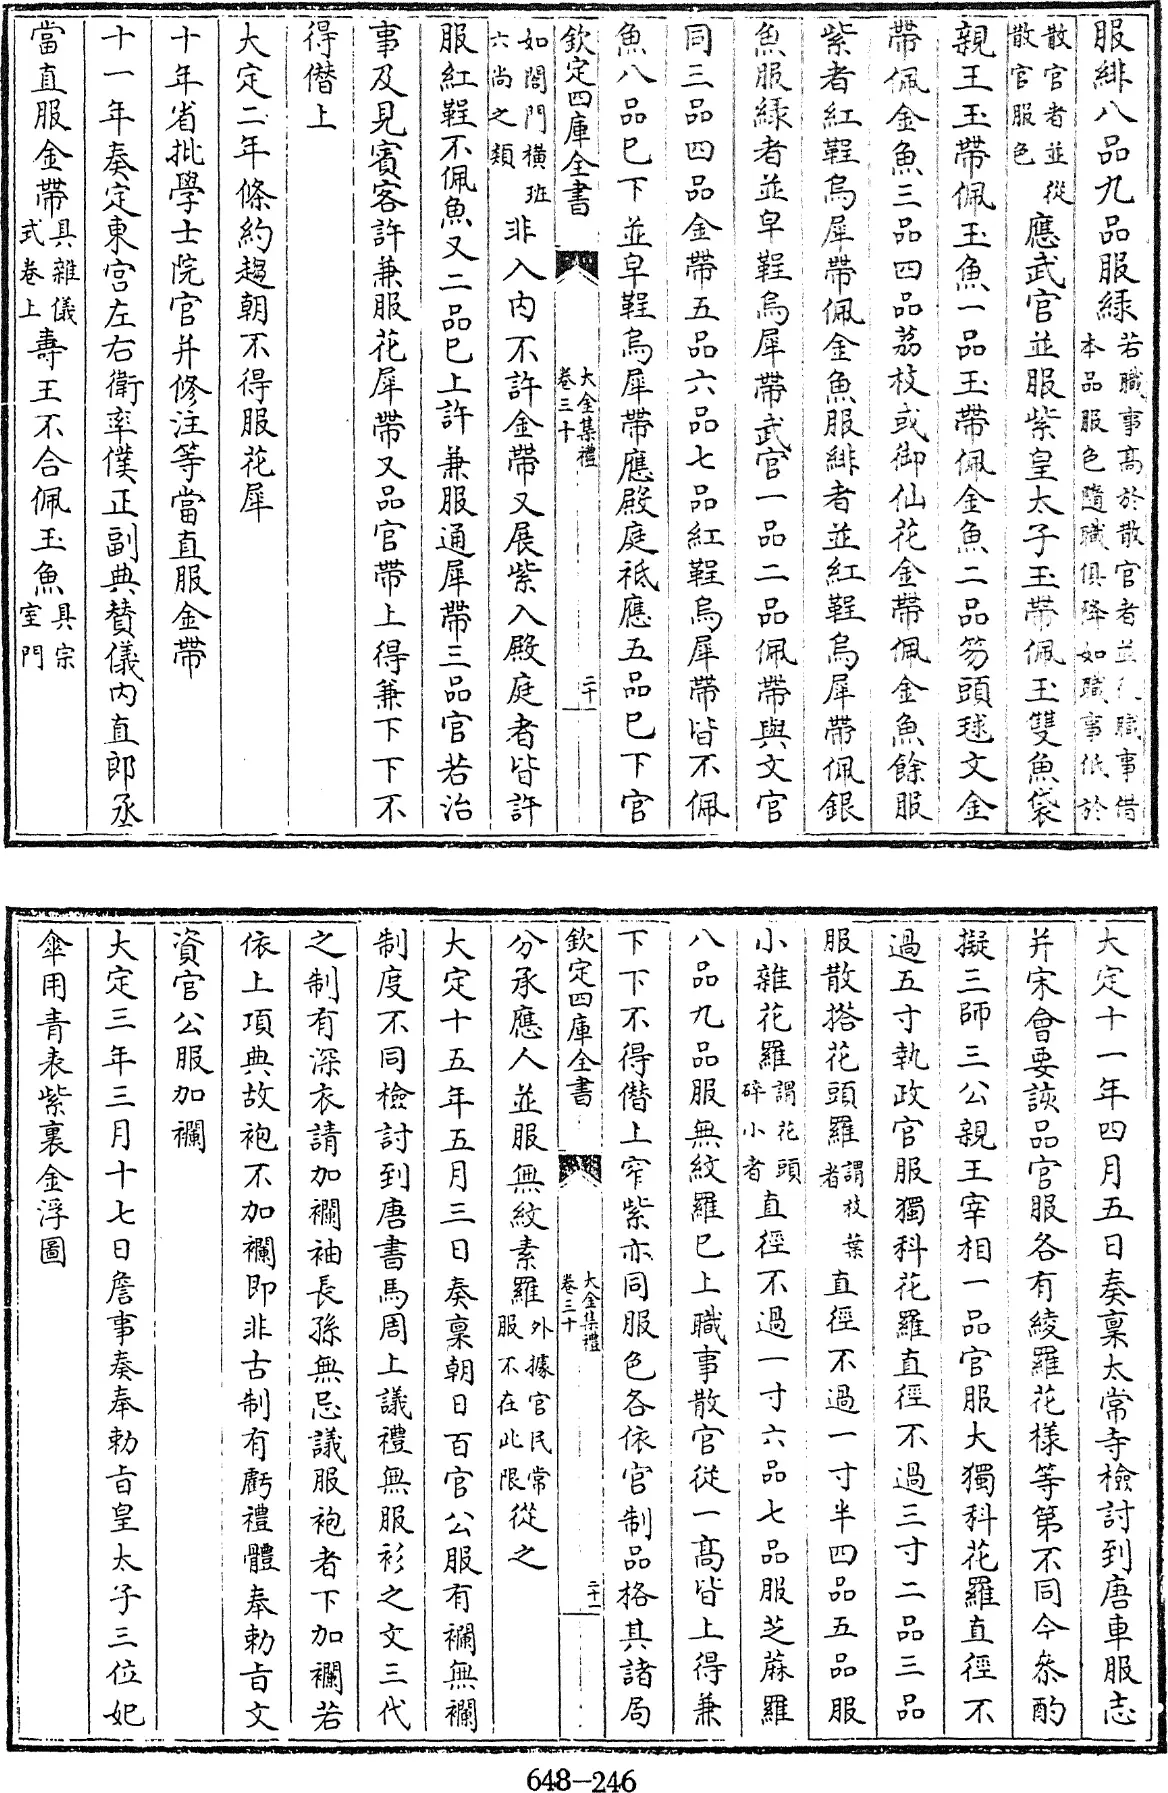 服緋八品九品服緑若職事高於散官者並從職事借
本品服色隨職俱降如職事低於
散官者並從
散官服色應武官並服紫皇太子玉帶佩玉雙魚袋
親王玉帶佩玉魚一品玉帶佩金魚二品笏頭毬文金
帶佩金魚三品四品荔枝或御仙花金帶佩金魚餘服
紫者紅鞓烏犀帶佩金魚服緋者並紅鞓烏犀帶佩銀
魚服緑者並皁鞓烏犀帶武官一品二品佩帶與文官
同三品四品金帶五品六品七品紅鞓烏犀帶皆不佩
魚八品已下並皁鞓烏犀帶應殿庭祗應五品已下官
欽定四庫全書
大金集禮
卷三十
二十一
如閤門橫班
六尚之類非入内不許金帶又展紫入殿庭者皆許
服紅鞓不佩魚又二品已上許兼服通犀帶三品官若治
事及見賓客許兼服花犀帶又品官帶上得兼下下不
得僭上
大定二年條約趨朝不得服花犀
十年省批學士院官并修注等當直服金帶
十一年奏定東宮左右衛率僕正副典賛儀内直郎丞
當直服金帶具雜儀
式卷上壽王不合佩玉魚具宗
室門
大定十一年四月五日奏稟太常寺檢討到唐車服志
并宋會要該品官服各有綾羅花樣等第不同今叅酌
擬三師三公親王宰相一品官服大獨科花羅直徑不
過五寸執政官服獨科花羅直徑不過三寸二品三品
服散搭花頭羅謂枝葉
者直徑不過一寸半四品五品服
小雜花羅謂花頭
碎小者直徑不過一寸六品七品服芝蔴羅
八品九品服無紋羅已上職事散官從一高皆上得兼
下下不得僭上窄紫亦同服色各依官制品格其諸局
欽定四庫全書
大金集禮
卷三十
二十一
分承應人並服無紋素羅外據官民常
服不在此限從之
大定十五年五月三日奏稟朝日百官公服有襴無襴
制度不同檢討到唐書馬周上議禮無服衫之文三代
之制有深衣請加襴袖長孫無忌議服袍者下加襴若
依上項典故袍不加襴即非古制有虧禮體奉勅㫖文
資官公服加襴
大定三年三月十七日詹事奏奉勅㫖皇太子三位妃
傘用青表紫裏金浮圖
648-246